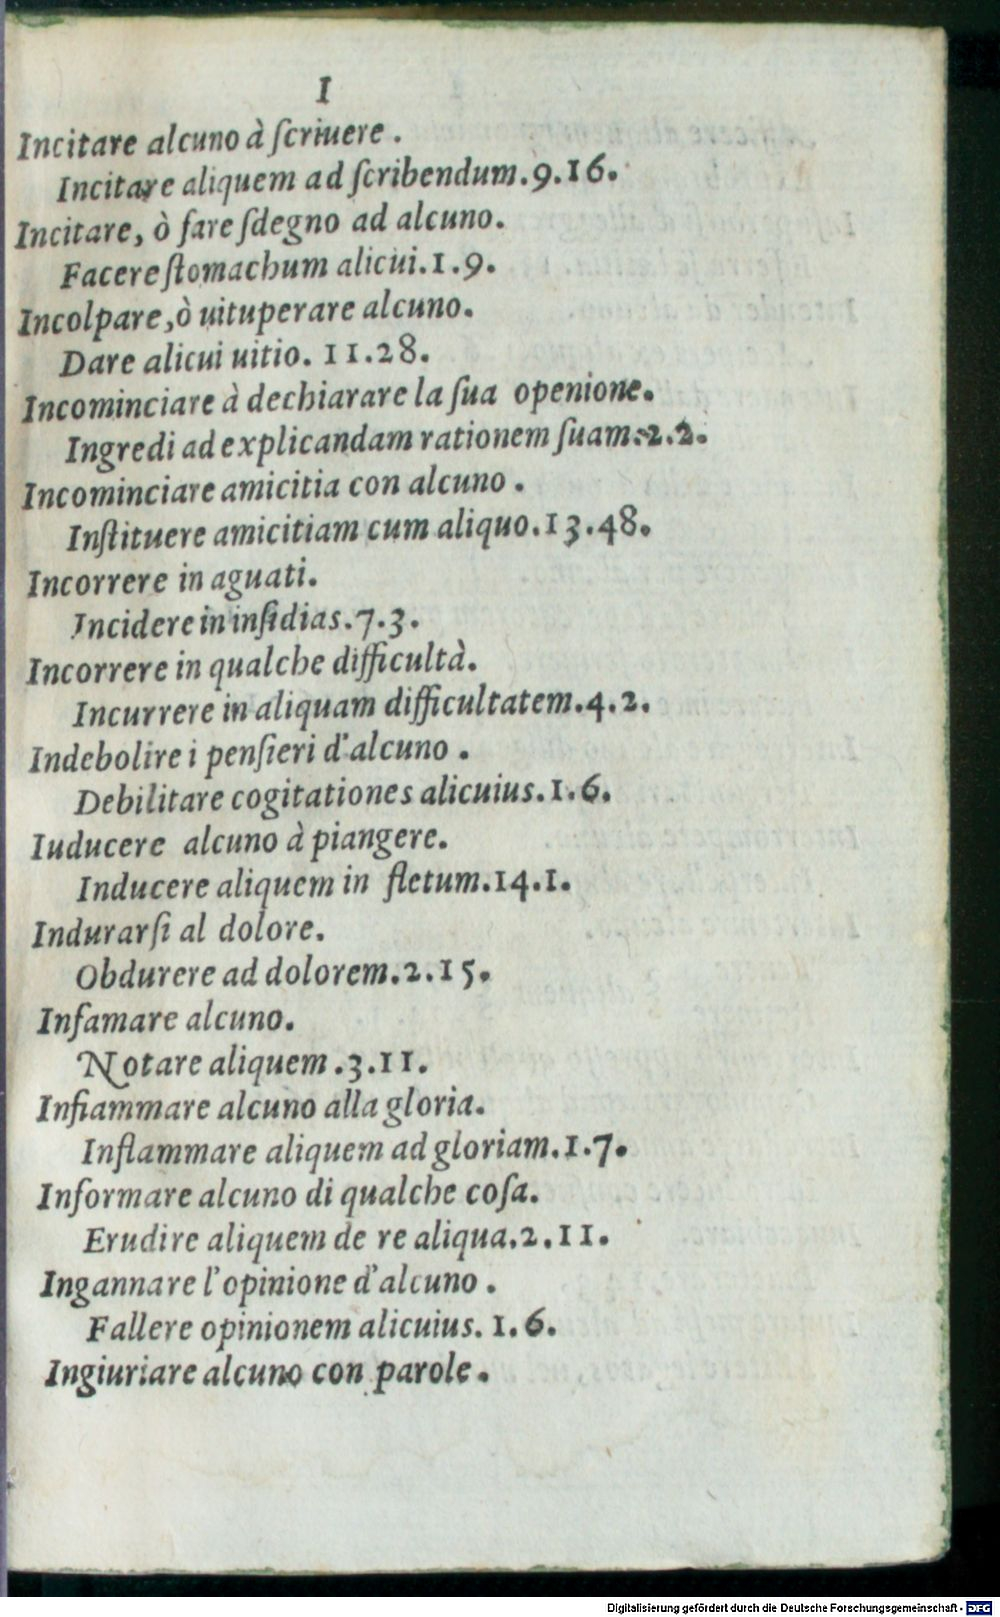 I
Incitare alcuno à ſcriuere .
Incitare aliquem ad ſcribendum.9.16.
Incitare, ò fare ſdegno ad alcuno.
Facere ſtomachum alicui.1.9.
Incolpare,ò uituperare alcuno.
Dare alicui uitio. 11.28.
Incominciare à dechiarare la ſua openione.
Ingredi ad explicandam rationem ſuam.2.2.
Incominciare amicitia con alcuno .
Inſtituere amicitiam cum aliquo.13.48.
Incorrere in aguati.
Incidere in inſidias.7.3.
Incorrere in qualche difficultà.
Incurrere in aliquam difficultatem.4.2.
Indebolire i penſieri d'alcuno .
Debilitare cogitationes alicuius.1.6.
Iuducere alcuno à piangere.
Inducere aliquem in fletum.14.1.
Indurarſi al dolore.
Obdurere ad dolorem.2.15.
Infamare alcuno.
Notare aliquem .3.11.
Infiammare alcuno alla gloria.
Inflammare aliquem ad gloriam.1.7.
Informare alcuno di qualche coſa.
Erudire aliquem de re aliqua.2.11.
Ingannare l'opinione d'alcuno .
Fallere opinionem alicuius. 1.6.
Ingiuriare alcuno con parole .
Digitalisierung gefördert durch die Deutsche Forschungsgemeinschaft - DFG